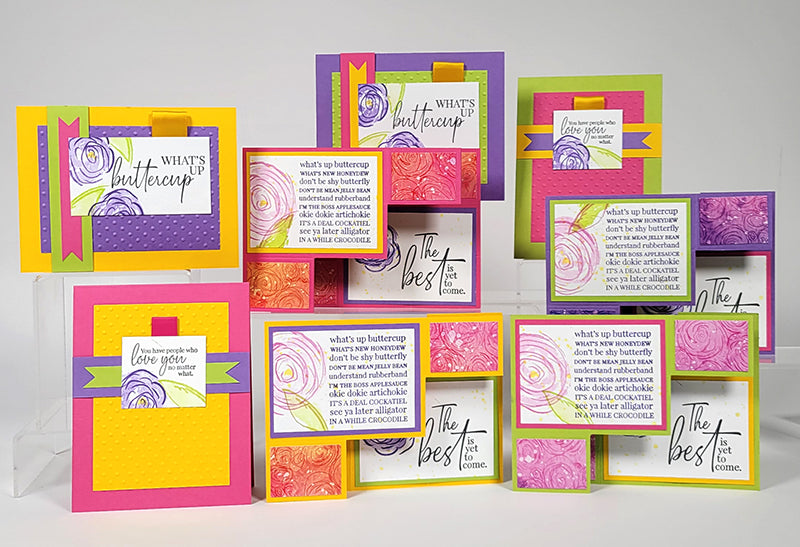 WHAT'S
UP
buttercup
WHAT'S
UP
buttercup
You have people who
love you
no matter
what.
what's up buttercup
WHAT'S NEW HONEYDEW
don't be shy butterfly
DON'T BE MEAN JELLY BEAN
understand rubberband
I'M THE BOSS APPLESAUCE
okie dokie artichokie
IT'S A DEAL COCKATIEL
see ya later alligator
IN A WHILE CROCODILE
The
best
is
yet
to
come.
what's up buttercup
WHAT'S NEW HONEYDEW
don't be shy butterfly
DON'T BE MEAN JELLY BEAN
understand rubberband
I'M THE BOSS APPLESAUCE
okie dokie artichokie
IT'S A DEAL COCKATIEL
see ya later alligator
IN A WHILE CROCODILE
The
best
is
yet
to
come.
You have people who
love you
no matter
what.
what's up buttercup
WHAT'S NEW HONEYDEW
don't be shy butterfly
DON'T BE MEAN JELLY BEAN
understand rubberband
I'M THE BOSS APPLESAUCE
okie dokie artichokie
IT'S A DEAL COCKATIEL
see ya later alligator
IN A WHILE CROCODILE
The
best
is
yet
to
come.
what's up buttercup
WHAT'S NEW HONEYDEW
don't be shy butterfly
DON'T BE MEAN JELLY BEAN
understand rubberband
I'M THE BOSS APPLESAUCE
okie dokie artichokie
IT'S A DEAL COCKATIEL
see ya later alligator
IN A WHILE CROCODILE
The
best
is
yet
to
come.